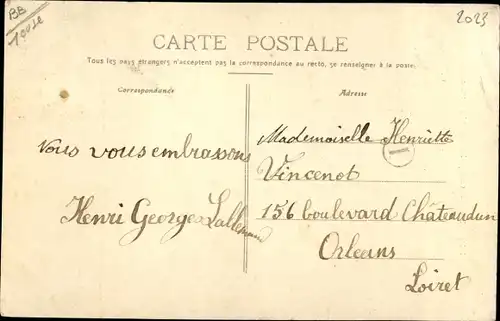 BB
2023
CARTE POSTALE
Tous les pays étrangers n'acceptent pas la correspondance au recto, se renseigner à la poste.
Correspondance
Adresse
Nous vous embrassons
Henri Georges Lallemand
Mademoiselle Henriette
Vincenot
156 boulevard Châteaudun
Orleans
Loiret